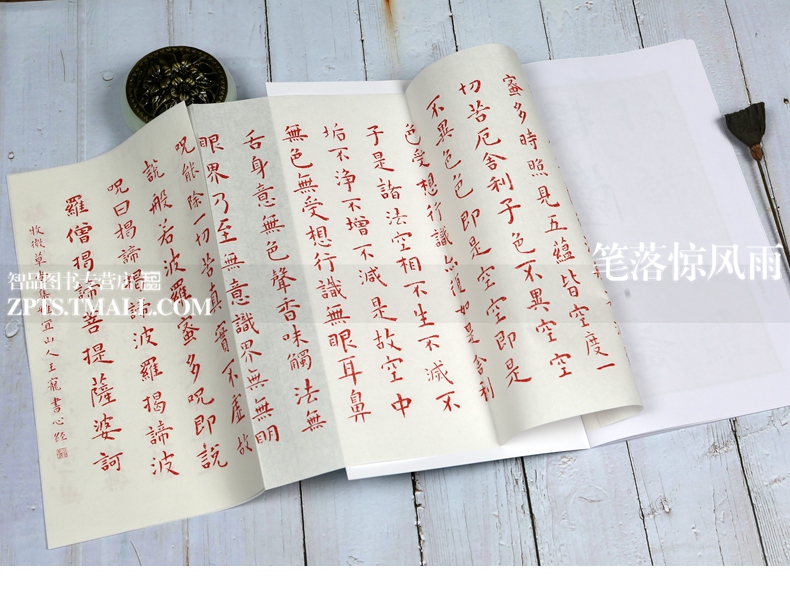 蜜多時照見五蘊皆空度一
切苦厄舍利子色不異空空
不異色色即是空空即是
色受想行識亦復如是舍利
子是諸法空相不生不滅不
垢不净不增不減是故空中
無色無受想行識無眼耳鼻
舌身意無色聲香味觸法無
眼界乃至無意識界無無明
呪能除一切苦真實不虛故
說般若波羅蜜多呪即說
呪曰揭諦揭諦波羅揭諦波
羅僧揭諦菩提薩婆訶
宜山人王寵書心經
笔落惊风雨
智品图书专营店
ZPTS.TMALL.COM